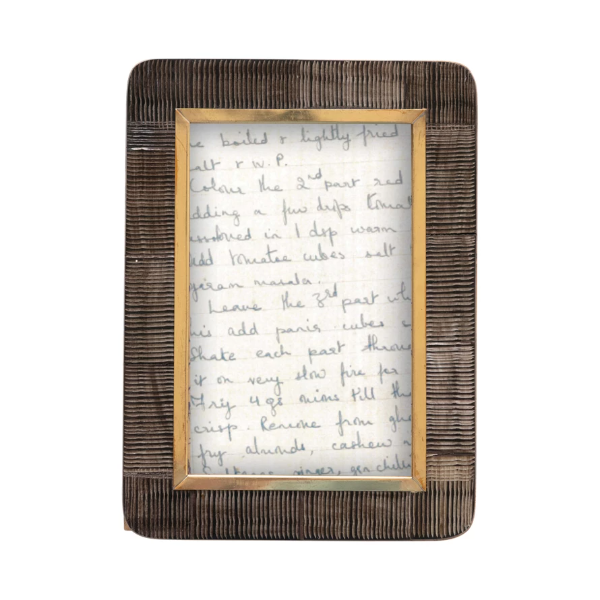 e boiled & lightly fried
alt & W.P.
Colour the 2nd part red
dding a few drops tomat
ssolved in 1 dsp warm
add tomatoe cubes salt
garam masala.
Leave the 3rd part whi
his add panir cubes
Shake each part throu
it on very slow fire for
Fry 4 gs onions till the
crisp. Remove from ghe
fry almonds, cashew n
ginger, grn chilie